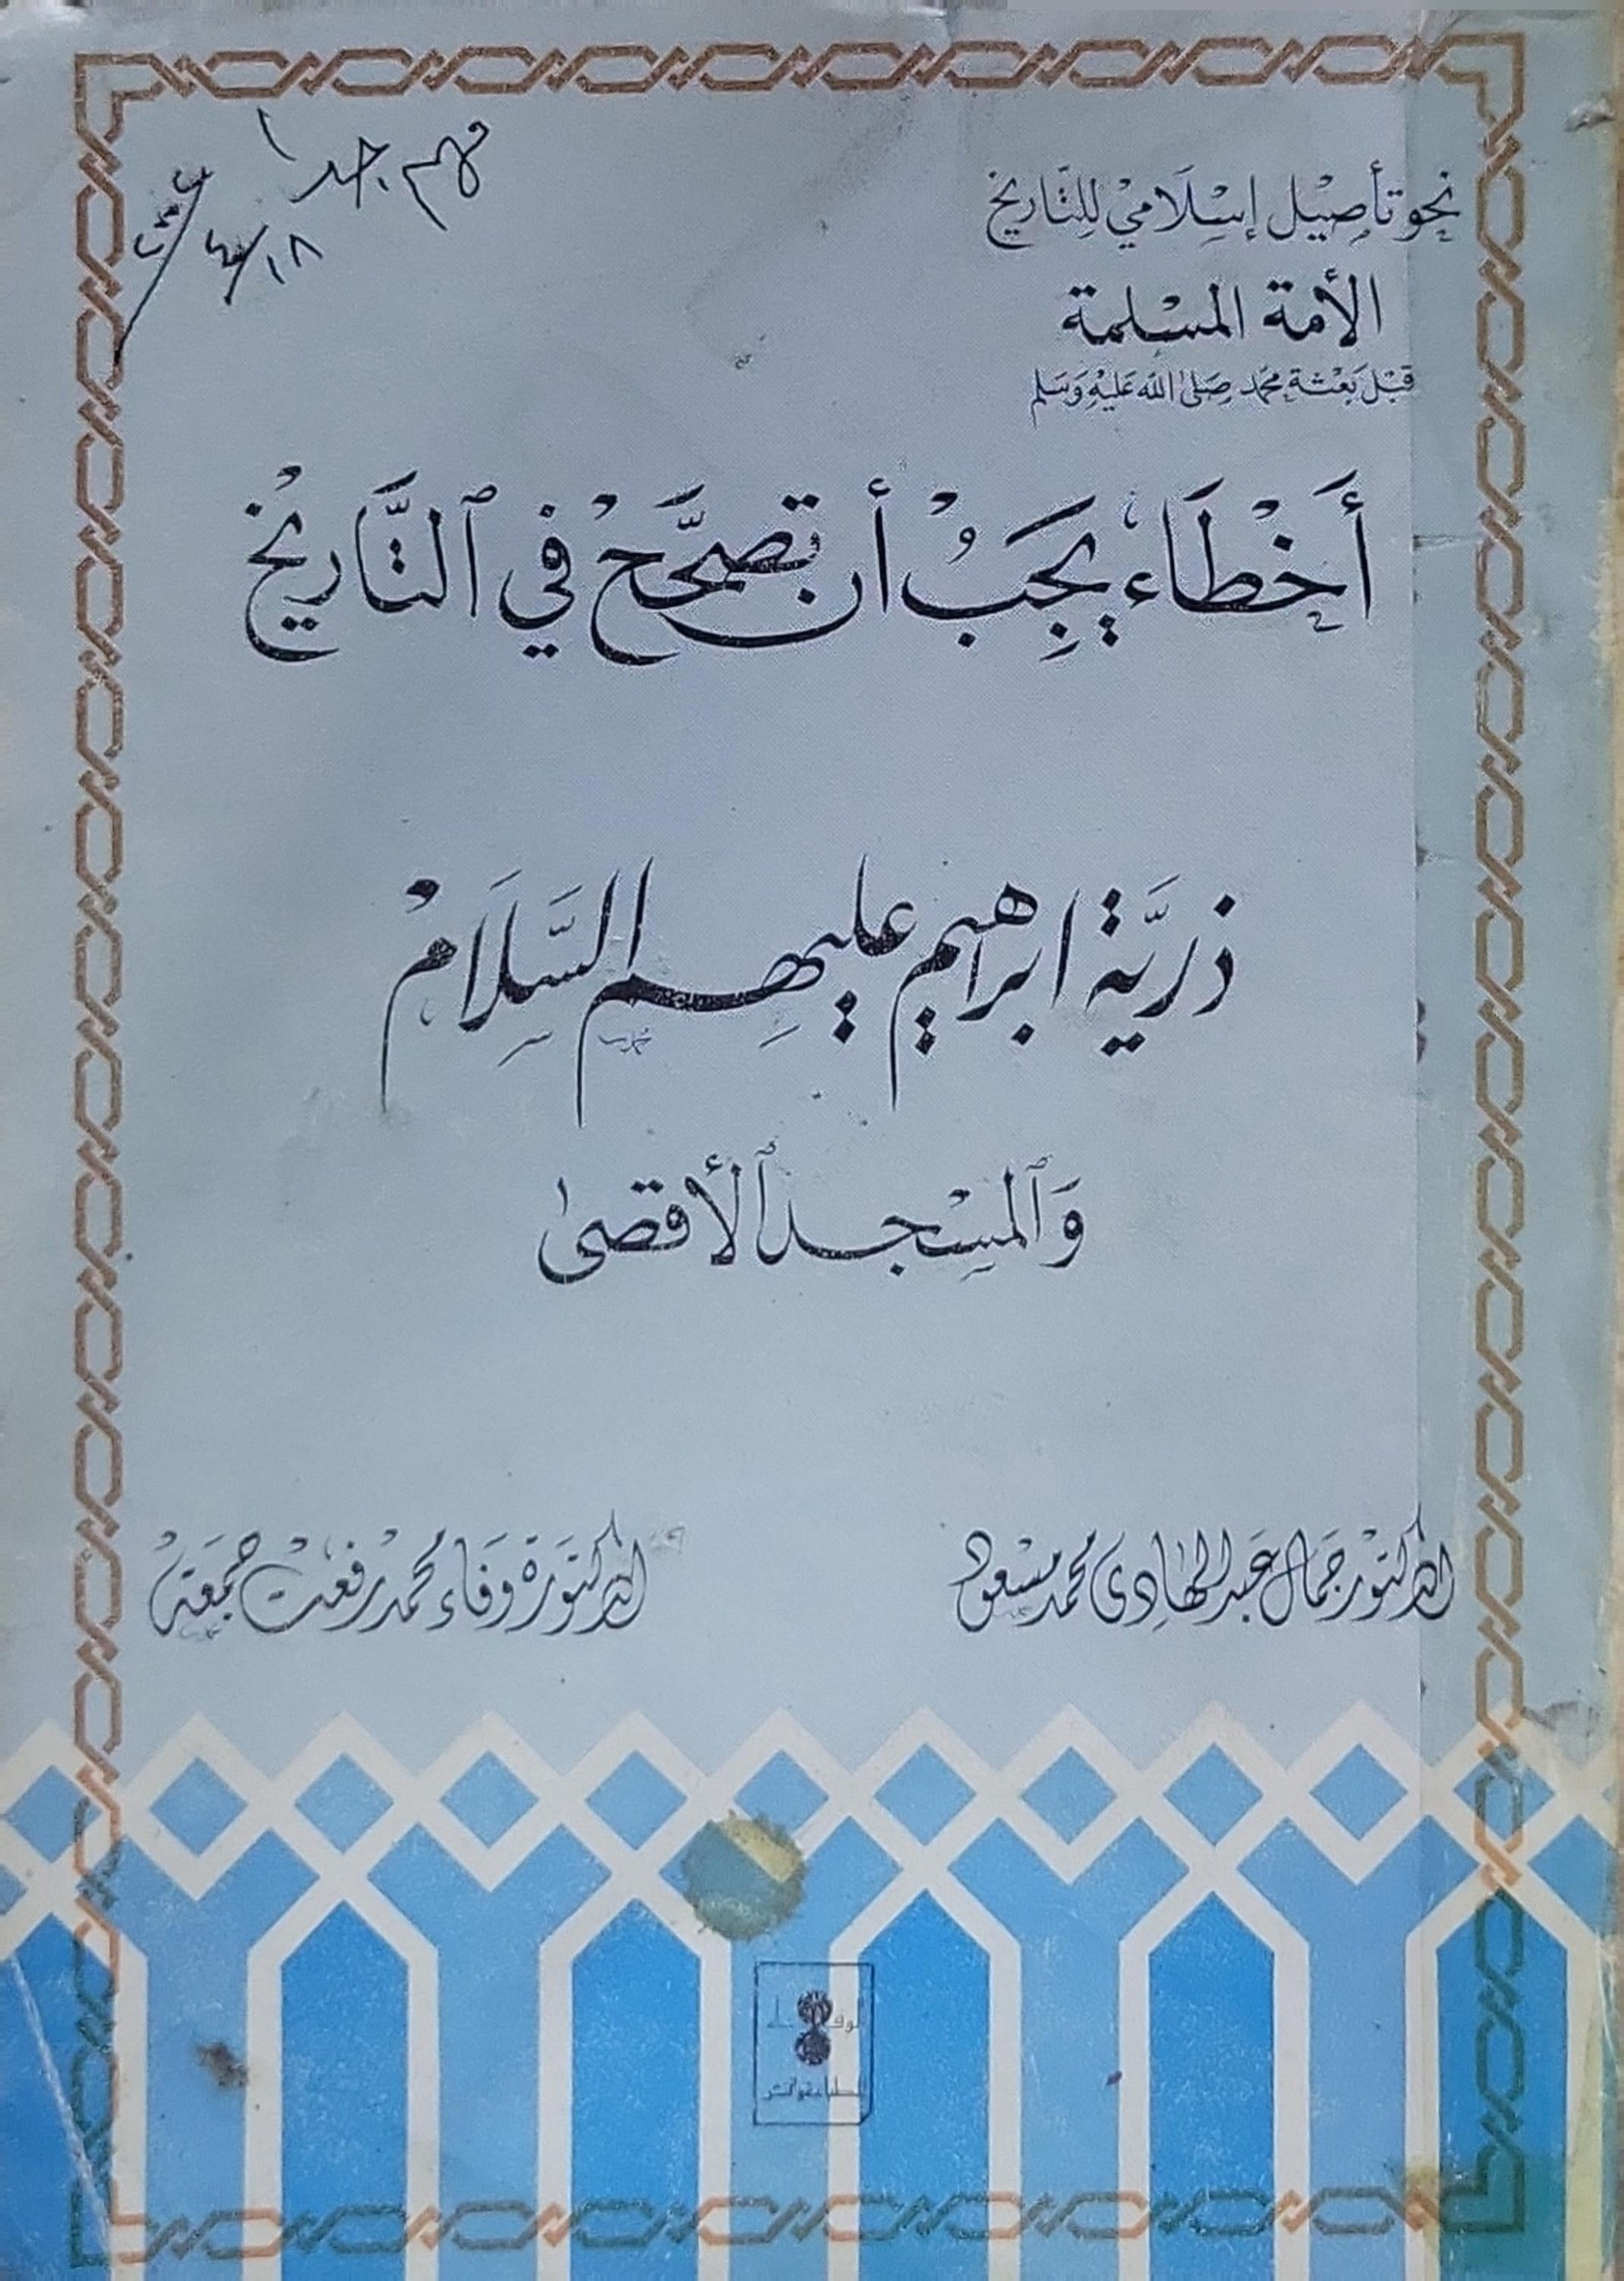 مهم جدا
١٨/٤/
نحو تأصيل إسلامي للتاريخ
الأمة المسلمة
قبل بعثة محمد صلى الله عليه وسلم
أَخْطَاء يَجِبُ أن تصحَّحْ في ٱلتَّاريخْ
ذريَّة ابراهيم عليهِم السَّلَامْ
وَٱلمسْجد ٱلأقصىٰ
الدكتور جمال عبد الهادى محمد مسعود
الدكتورة وفاء محمد رفعت جمعة
للطباعة والنشر